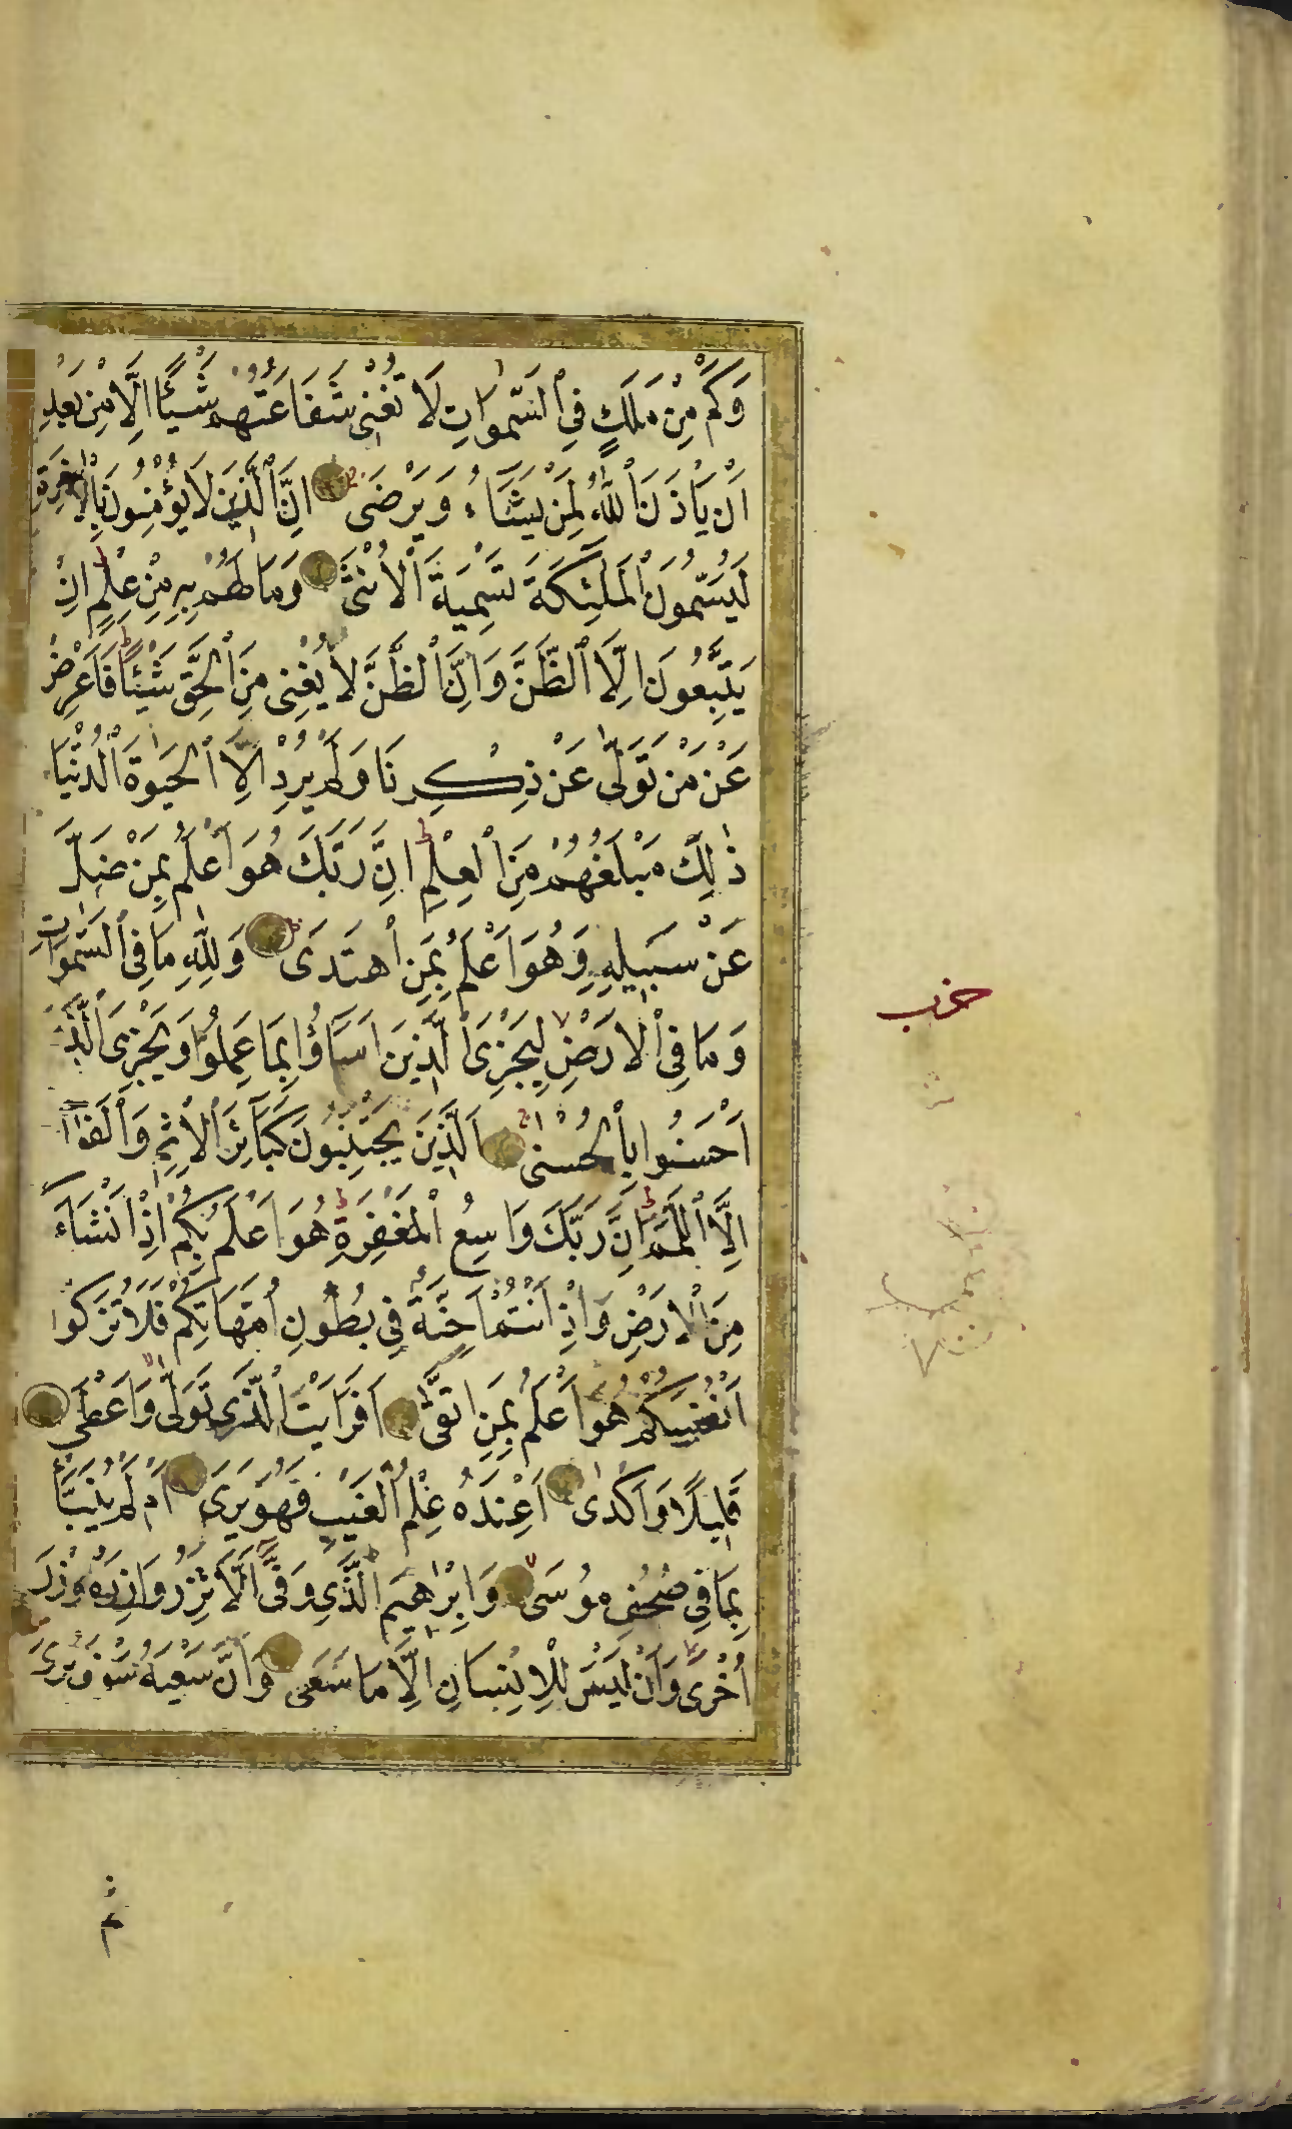 وَكَمْ مِنْ مَلَكٍ فِى ٱلسَّمٰوَاتِ لَا تُغْنِى شَفَاعَتُهُمْ شَيْئًا اِلَّا مِنْ بَعْدِ
اَنْ يَاْذَنَ ٱللّٰهُ لِمَنْ يَشَاءُ وَيَرْضٰى اِنَّ ٱلَّذِينَ لَا يُؤْمِنُونَ بِٱلْاٰخِرَةِ
لَيُسَمُّونَ ٱلْمَلٰئِكَةَ تَسْمِيَةَ ٱلْاُنْثٰى وَمَا لَهُمْ بِهِ مِنْ عِلْمٍ اِنْ
يَتَّبِعُونَ اِلَّا ٱلظَّنَّ وَاِنَّ ٱلظَّنَّ لَا يُغْنِى مِنَ ٱلْحَقِّ شَيْئًا فَاَعْرِضْ
عَنْ مَنْ تَوَلّٰى عَنْ ذِكْرِنَا وَلَمْ يُرِدْ اِلَّا ٱلْحَيٰوةَ ٱلدُّنْيَا
ذٰلِكَ مَبْلَغُهُمْ مِنَ ٱلْعِلْمِ اِنَّ رَبَّكَ هُوَ اَعْلَمُ بِمَنْ ضَلَّ
عَنْ سَبِيلِهِ وَهُوَ اَعْلَمُ بِمَنِ ٱهْتَدَى وَلِلّٰهِ مَا فِى ٱلسَّمٰوَاتِ
وَمَا فِى ٱلْاَرْضِ لِيَجْزِىَ ٱلَّذِينَ اَسَاؤُا بِمَا عَمِلُوا وَيَجْزِىَ ٱلَّذِينَ
اَحْسَنُوا بِٱلْحُسْنٰى اَلَّذِينَ يَجْتَنِبُونَ كَبَآئِرَ ٱلْاِثْمِ وَٱلْفَوَاحِشَ
اِلَّا ٱللَّمَمَ اِنَّ رَبَّكَ وَاسِعُ ٱلْمَغْفِرَةِ هُوَ اَعْلَمُ بِكُمْ اِذْ اَنْشَاَكُمْ
مِنَ ٱلْاَرْضِ وَاِذْ اَنْتُمْ اَجِنَّةٌ فِى بُطُونِ اُمَّهَاتِكُمْ فَلَا تُزَكُّوا
اَنْفُسَكُمْ هُوَ اَعْلَمُ بِمَنِ ٱتَّقٰى اَفَرَاَيْتَ ٱلَّذِى تَوَلّٰى وَاَعْطٰى
قَلِيلًا وَاَكْدٰى اَعِنْدَهُ عِلْمُ ٱلْغَيْبِ فَهُوَ يَرَى اَمْ لَمْ يُنَبَّأْ
بِمَا فِى صُحُفِ مُوسَى وَاِبْرٰهِيمَ ٱلَّذِى وَفّٰى اَلَّا تَزِرُ وَازِرَةٌ وِزْرَ
اُخْرَى وَاَنْ لَيْسَ لِلْاِنْسَانِ اِلَّا مَا سَعٰى وَاَنَّ سَعْيَهُ سَوْفَ يُرٰى
حزب
ثم